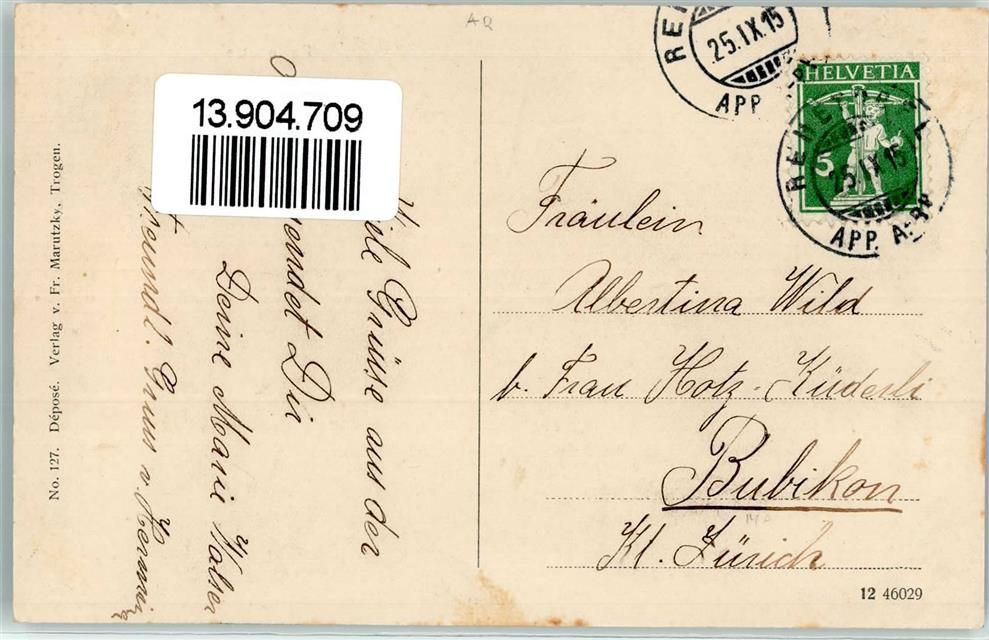 AR
13.904.709
No. 127. Déposé. Verlag v. Fr. Marutzky, Trogen.
Viele Grüsse aus der
sendet Dir
Deine Marie Walser
Freundl. Gruss v.
25.IX.15
APP
HELVETIA
5
REHETOBEL
25.IX.15
APP. A-RH
Fräulein
Albertina Wild
b. Frau Hotz-Küderli
Bubikon
Kt. Zürich
12 46029